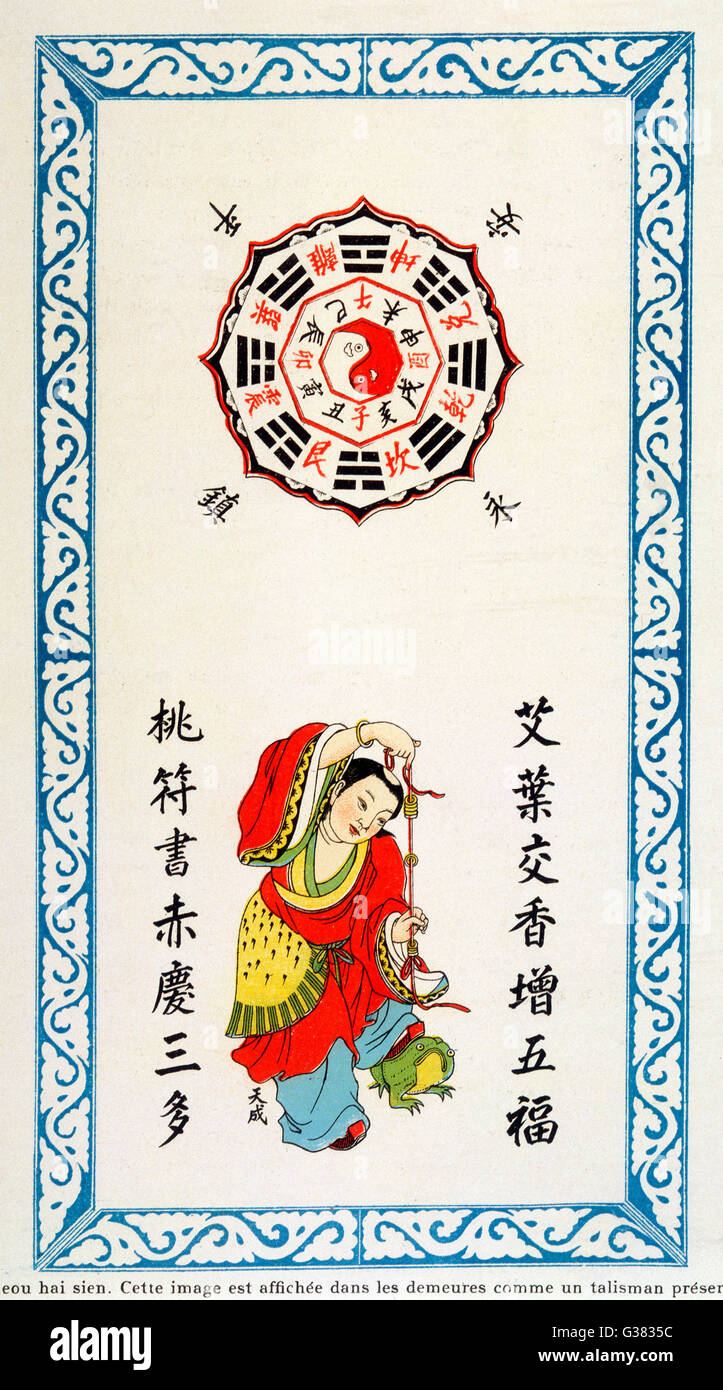 平
安
離坤兌乾坎艮震巽
午未申酉戌亥子丑寅卯辰巳
鎮
永
艾葉交香增五福
桃符書赤慶三多
天成
eou hai sien. Cette image est affichée dans les demeures comme un talisman préser
alamy
alamy
Image ID: G3835C
www.alamy.com